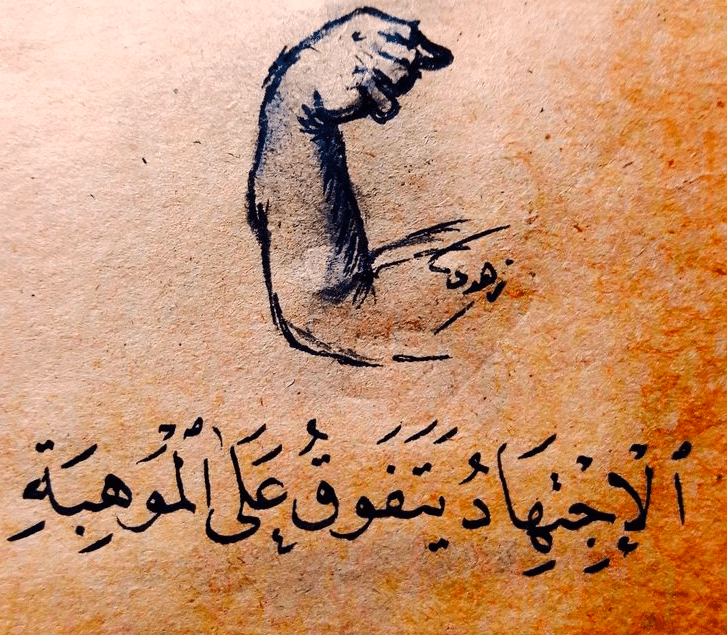 زهدي
ٱلْإِجْتِهَادُ يَتَفَوقُ عَلىٰ ٱلْمَوْهِبَةِ